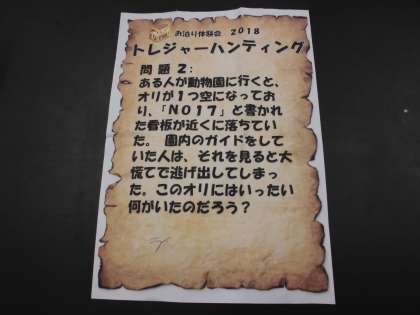 お泊り体験会 2018
トレジャーハンティング
問題2:
ある人が動物園に行くと、
オリが1つ空になってお
り、「NO17」と書かれ
た看板が近くに落ちてい
た。 園内のガイドをして
いた人は、それを見ると大
慌てで逃げ出してしまっ
た。このオリにはいったい
何がいたのだろう?